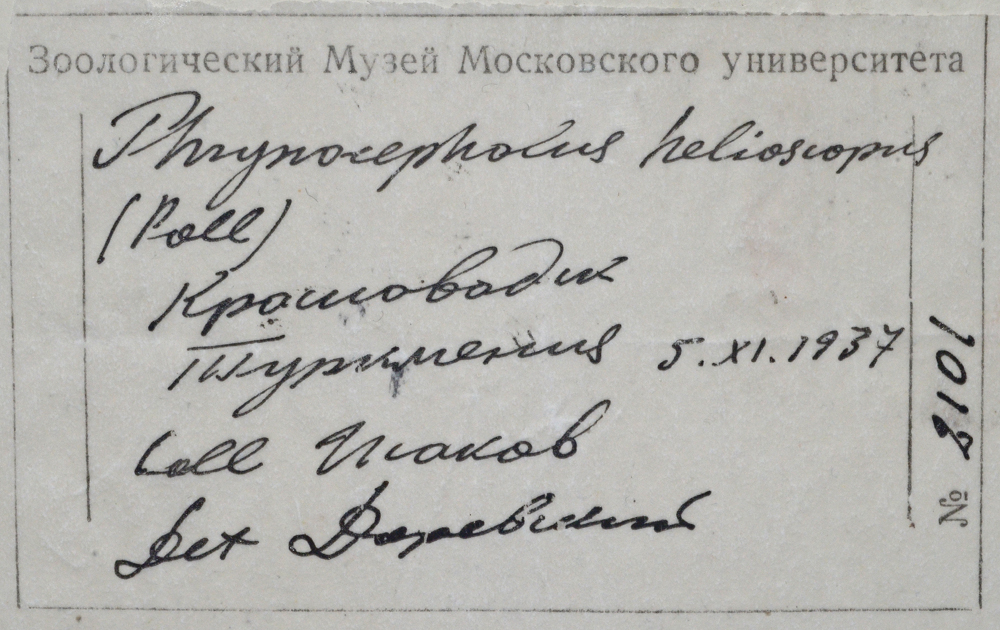 Зоологический Музей Московского университета
Phrynocephalus helioscopus
(Pall)
Красноводск
Туркмения 5.XI.1937
Coll Исаков
Det Даревский
№ 2101